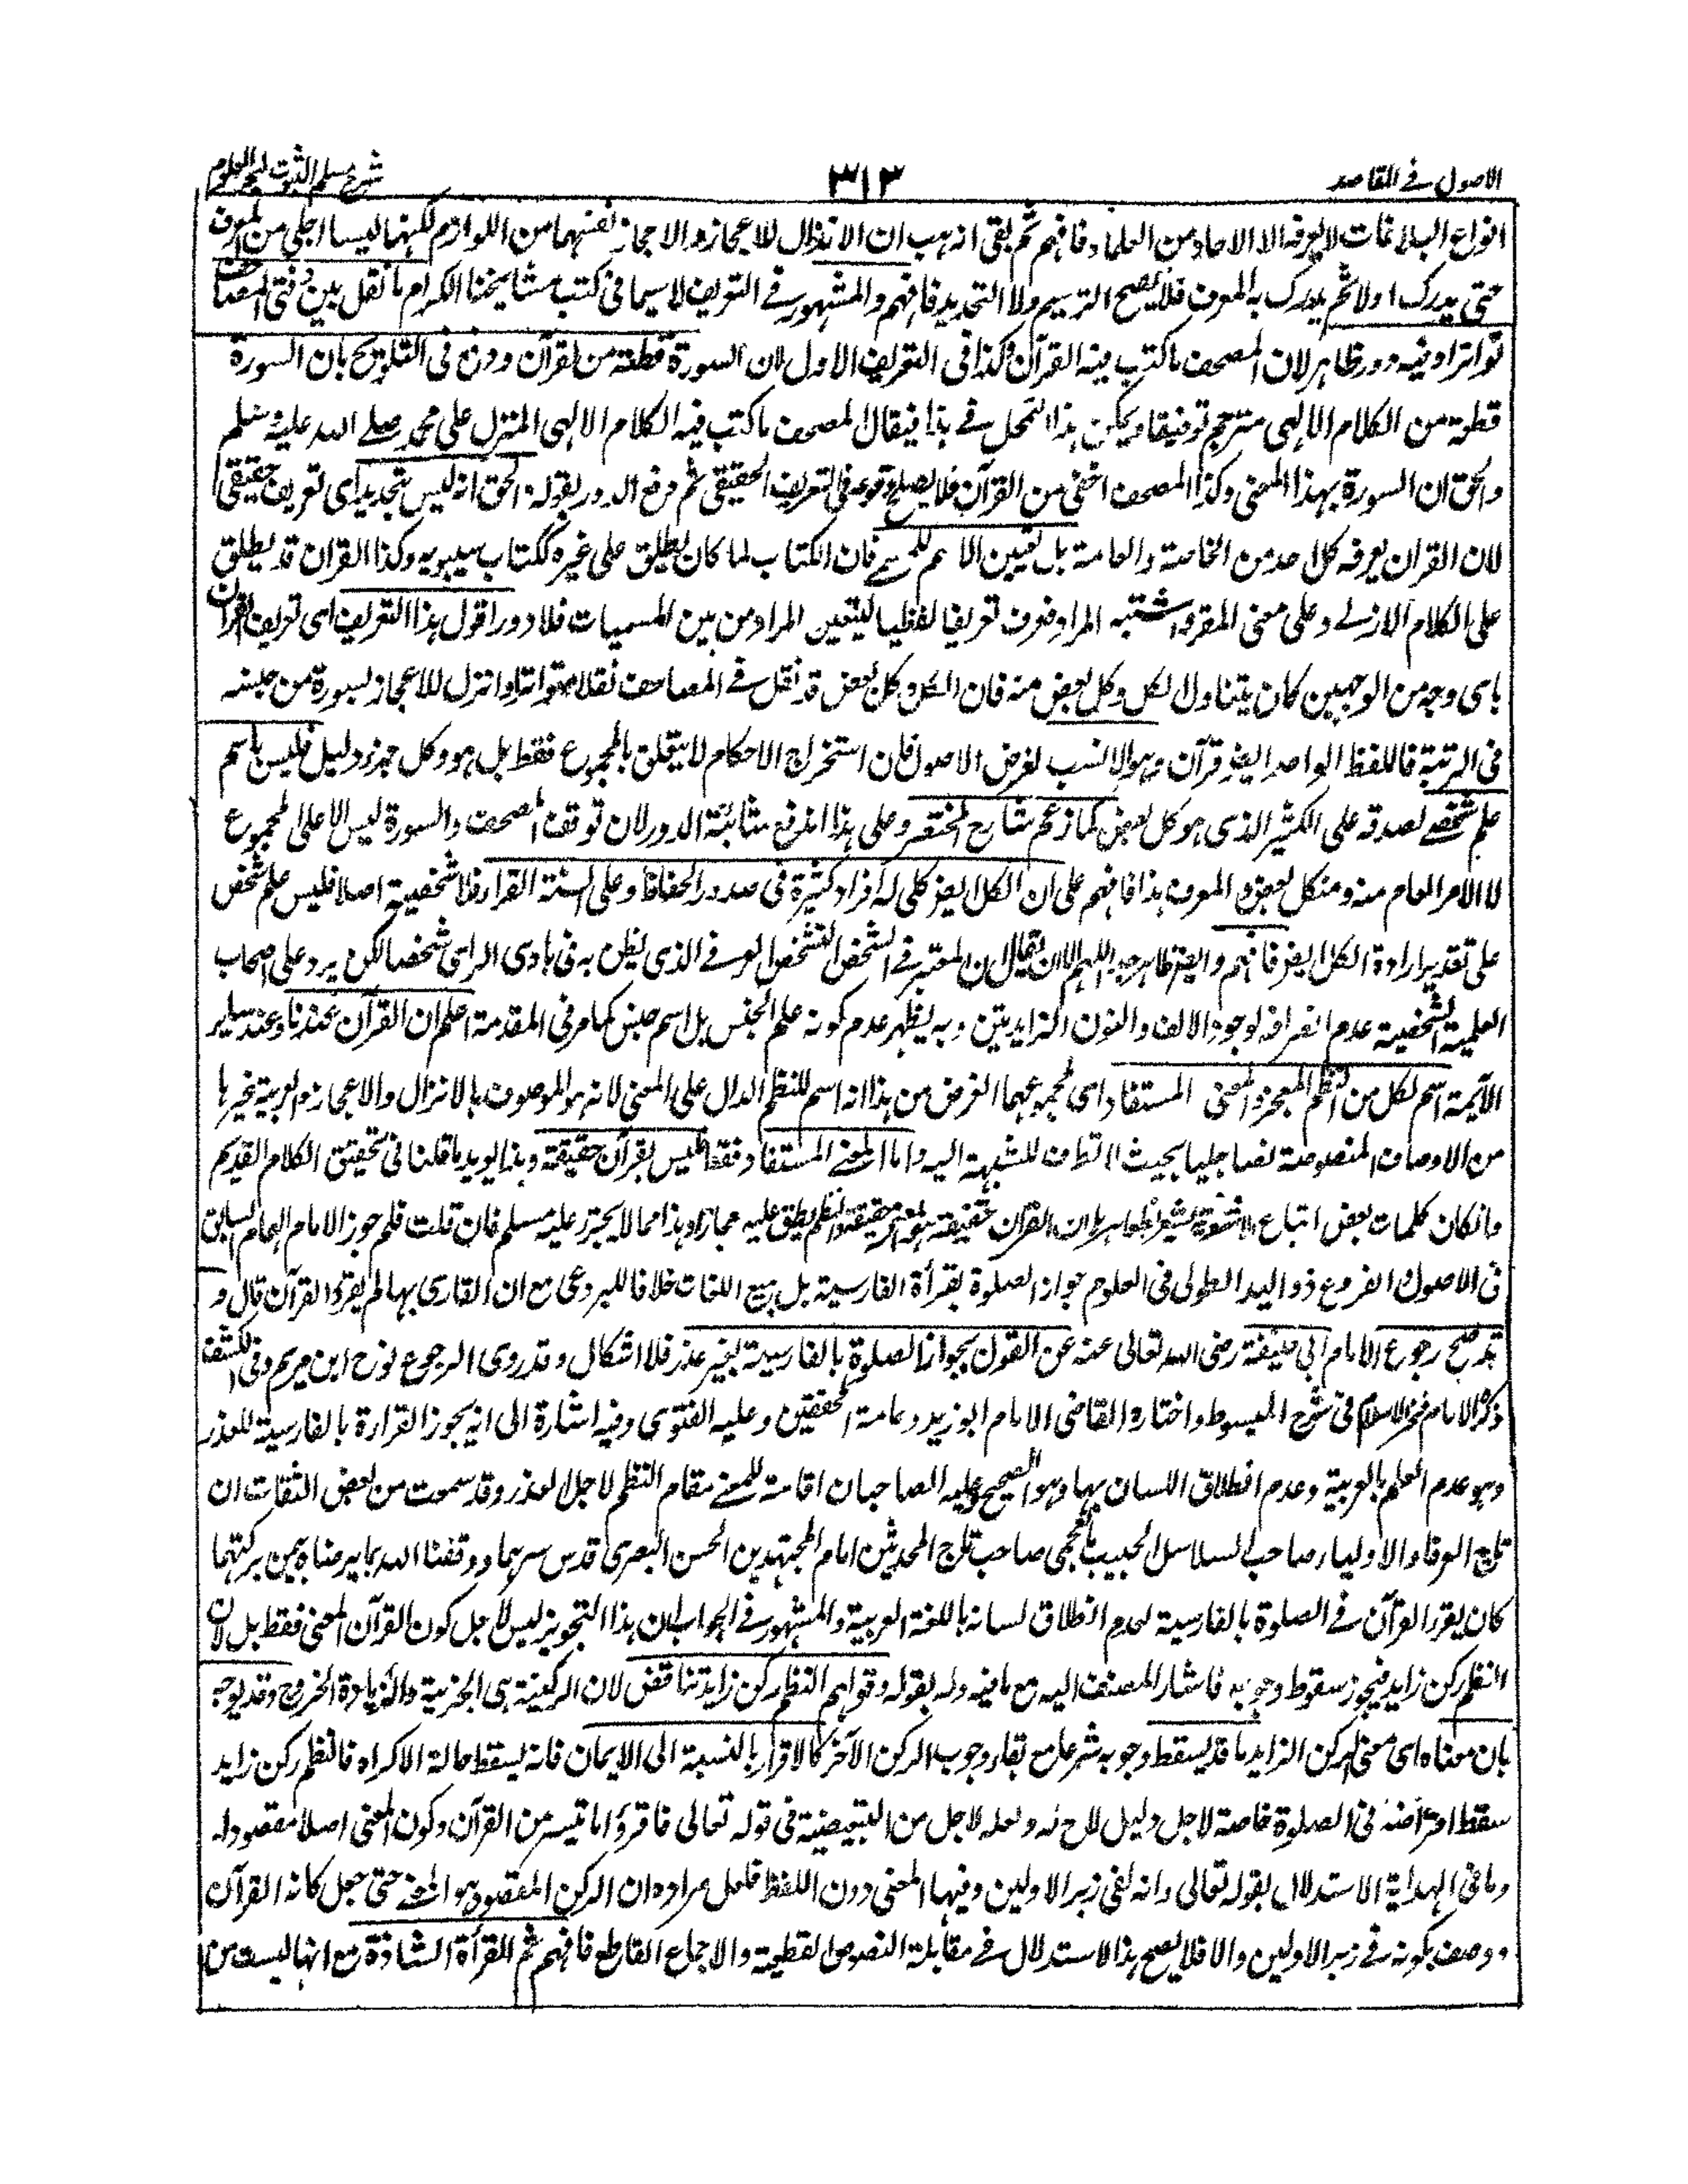 الاصول فے المقاصد ٣١٣ شرح مسلم الثبوت لبحر العلوم
انواع البلاغات لا یعرفہ الا الاحاد من العلماء فافہم ثم بقی انہ ہب ان الانزال للاعجاز والاعجاز نفسہما من اللوازم لکنہما لیسا اجلی من المعرف
حتی یدرک اولا ثم یدرک بہ المعرف فلا یصح الترسیم ولا التحدید فافہم والمشہور فے التعریف لا سیما فی کتب مشایخنا الکرام ما نقل بین دفتی المصاحف
تواترا وفیہ دور ظاہر لان المصحف ما کتب فیہ القرآن وکذا فی التعریف الاول لان السورۃ قطعۃ من القرآن ودفع فی التلویح بان السورۃ
قطعۃ من الکلام الالہی مترجم توقیفا ویمکن ہذا التمحل فے ہذا فیقال المصحف ما کتب فیہ الکلام الالہی المنزل علی محمد صلے اللہ علیہ وسلم
والحق ان السورۃ بہذا المعنی وکذا المصحف اخفی من القرآن فلا یصلح وقوعہ فی التعریف الحقیقی ثم دفع الدور بقولہ الحق انہ لیس بتحدید ای تعریف حقیقی
لان القرآن یعرفہ کل احد من الخاصۃ والعامۃ بل تعیین الاسم للمسمے فان الکتاب لما کان یطلق علی غیرہ ککتاب سیبویہ وکذا القرآن قد یطلق
علی الکلام الازلے وعلی معنی المقرو اشتبہ المراد فعرف تعریفا لفظیا لیتعین المراد من بین المسمیات فلا دور اقول ہذا التعریف ای تعریف القرآن
بای وجہ من الوجہین کان یتناول الکل وکل بعض منہ فان الکل وکل بعض قد نقل فے المصاحف نقلا متواترا وانزل للاعجاز بسورۃ من جنسہ
فی الرتبۃ فاللفظ الواحد ایضا قرآن وہو الانسب لغرض الاصول فان استخراج الاحکام لا یتعلق بالمجموع فقط بل ہو وکل جزء دلیل فلیس باسم
علم شخصے لصدقہ علی الکثیر الذی ہو کل بعض کما زعم شارح المختصر وعلی ہذا اندفع شائبۃ الدور لان توقف المصحف والسورۃ لیس الا علی المجموع
لا الامر العام منہ ومن کل بعض والمعرف ہذا فافہم علی ان الکل ایضا کلی لہ افراد کثیرۃ فی صدور الحفاظ وعلی السنۃ القراء فلا شخصیۃ اصلا فلیس علم شخص
علی تقدیر ارادۃ الکل ایضا فافہم وایضا ظاہر جدا اللہم الا ان یقال ان المعتبر فے الشخص التشخص العرفے الذی یظن بہ فی بادی الرای شخصا لکن یرد علی اصحاب
العلمیۃ الشخصیۃ عدم انصرافہ لوجود الالف والنون الزایدتین وبہ یظہر عدم کونہ علم الجنس بل اسم جنس کما مر فی المقدمۃ اعلم ان القرآن عندنا وعند سایر
الایمۃ اسم لکل من النظم المعجز والمعنی المستفاد ای لمجموعہما الغرض من ہذا انہ اسم للنظم الدال علی المعنی لانہ ہو الموصوف بالانزال والاعجاز والعربیۃ وغیرہا
من الاوصاف المنصوصۃ نصا جلیا بحیث لا تطرف للشبہۃ الیہ واما المعنے المستفاد فقط فلیس بقرآن حقیقۃ وہذا یوید ما قلنا فی تحقیق الکلام القدیم
وانکان کلمات بعض اتباع الاشعریۃ یشعر ظواہر بان القرآن حقیقۃ ہو المعنی حقیقۃ والنظم یطلق علیہ مجازا وہذا مما لا یجترء علیہ مسلم فان قلت فلم جوز الامام الہمام السابق
فی الاصول الفروع ذو الید الطولی فی العلوم جواز الصلوۃ بقرأۃ الفارسیۃ بل بجمیع اللغات خلافا للبردعی مع ان القاری بہا لم یقرء القرآن قال و
قد صح رجوع الامام ابی حنیفۃ رضی اللہ تعالی عنہ عن القول بجواز الصلوۃ بالفارسیۃ بغیر عذر فلا اشکال وقد روی الرجوع نوح ابن مریم وفی الکشف
ذکر الامام فخر الاسلام فی شرح المبسوط واختارہ القاضی الامام ابو زید وعامۃ المحققین وعلیہ الفتوی وفیہ اشارۃ الی انہ یجوز القراءۃ بالفارسیۃ للعذر
وہو عدم العلم بالعربیۃ وعدم انطلاق اللسان بہا وہو الصحیح وعلیہ الصاحبان اقامۃ للمعنے مقام النظم لاجل العذر وقد سمعت من بعض الثقات ان
تاج العرفاء والاولیاء صاحب السلاسل الحبیب العجمی صاحب تاج المحدثین امام المجتہدین الحسن البصری قدس سرہما ووفقنا اللہ بما یرضاہ بیمن برکتہما
کان یقرء القرآن فے الصلوۃ بالفارسیۃ لعدم انطلاق لسانہ باللغۃ العربیۃ والمشہور فے الجواب ان ہذا التجویز لیس لاجل کون القرآن المعنی فقط بل لان
النظم رکن زاید فیجوز سقوط وجوبہ فاشار المصنف الیہ مع ما فیہ ولہ بقولہ وقولہم النظم رکن زاید تناقض لان الرکنیۃ ہی الجزئیۃ والزیادۃ الخروج وقد یوجہ
بان معناہ ای معنی الرکن الزاید ما قد یسقط وجوبہ شرعا مع بقاء وجوب الرکن الآخر کالاقرار بالنسبۃ الی الایمان فانہ یسقط حالۃ الاکراہ فالنظم رکن زاید
سقط افتراضہ فی الصلوۃ خاصۃ لاجل دلیل لاح لہ ولعلہ لاجل من التبعیضیۃ فی قولہ تعالی فاقرؤا ما تیسر من القرآن وکون المعنی اصلا مقصودا
وما فی الہدایۃ الاستدلال بقولہ تعالی وانہ لفی زبر الاولین وفیہا المعنی دون اللفظ فلعل مرادہ ان الرکن المقصود ہو المعنے حتی جعل کانہ القرآن
ووصف بکونہ فے زبر الاولین والا فلا یصح ہذا الاستدلال فے مقابلۃ النصوص القطعیۃ والاجماع القاطع فافہم ثم القرأۃ الشاذۃ مع انہا لیست من